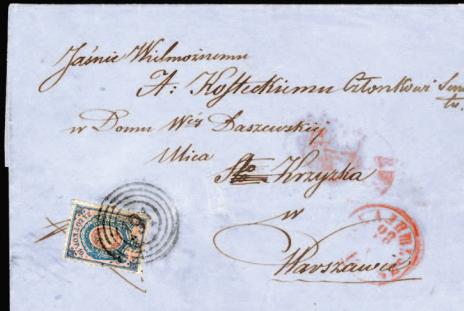 Jaśnie Wielmożnemu
A: Kossteckiemu Członkowi Sena
w Domu Wéj Daszewskiej
Ulica
Sto Krzyzka
w
Warszawie